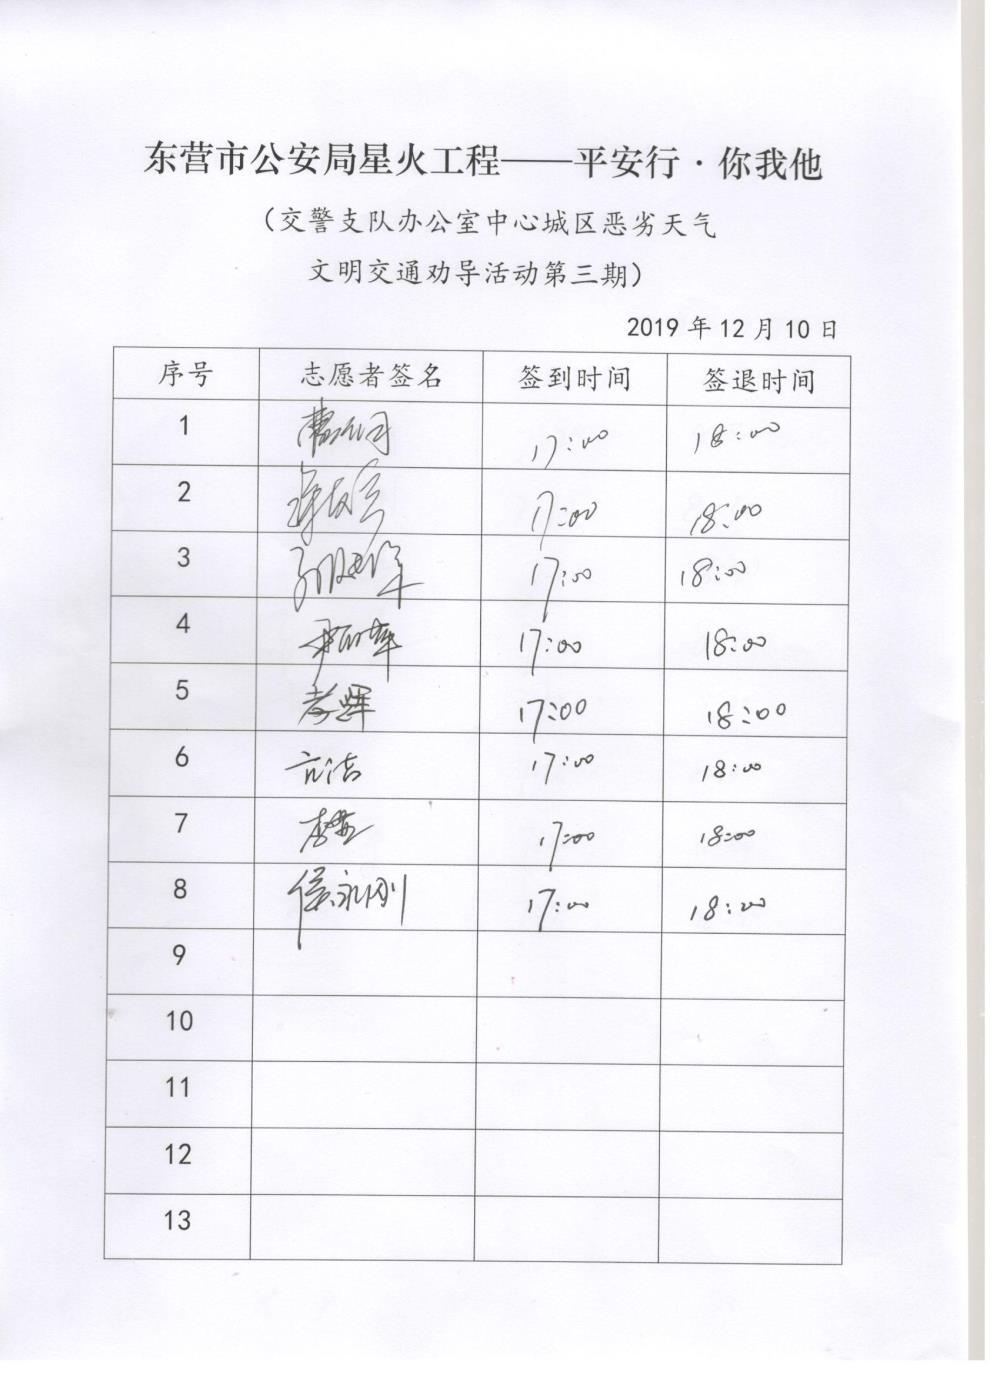 东营市公安局星火工程——平安行·你我他
（交警支队办公室中心城区恶劣天气
文明交通劝导活动第三期）
2019 年 12 月 10 日
序号 志愿者签名 签到时间 签退时间
1 17:00 18:00
2 17:00 18:00
3 17:00 18:00
4 17:00 18:00
5 17:00 18:00
6 17:00 18:00
7 17:00 18:00
8 侯永刚 17:00 18:00
9
10
11
12
13